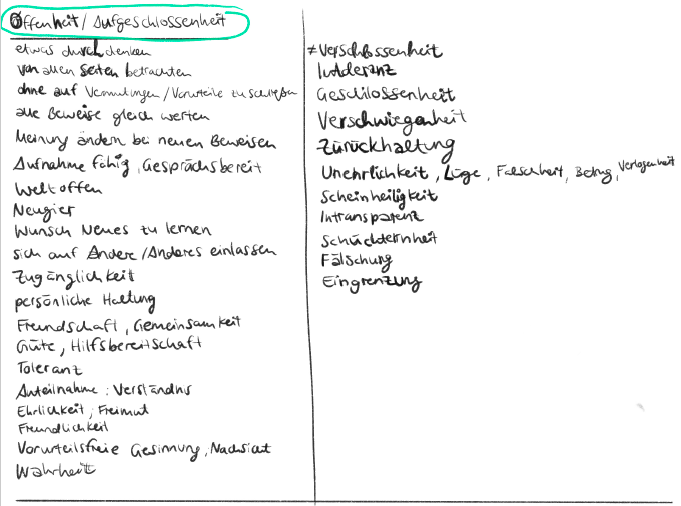 Offenheit / Aufgeschlossenheit
etwas durchdenken
von allen Seiten betrachten
ohne auf Vermutungen / Vorurteile zu schließen
alle Beweise gleich werten
Meinung ändern bei neuen Beweisen
Aufnahme fähig, Gesprächsbereit
Weltoffen
Neugier
Wunsch Neues zu lernen
sich auf Andere / Anderes einlassen
Zugänglichkeit
persönliche Haltung
Freundschaft, Gemeinsamkeit
Güte, Hilfsbereitschaft
Toleranz
Anteilnahme; Verständnis
Ehrlichkeit; Freimut
Freundlichkeit
Vorurteilsfreie Gesinnung, Nachsicht
Wahrheit
≠ Verschlossenheit
Geschlossenheit
Verschwiegenheit
Zurückhaltung
Unehrlichkeit, Lüge, Falschheit, Betrug, Verlogenheit
Scheinheiligkeit
Intransparenz
Schüchternheit
Fälschung
Eingrenzung